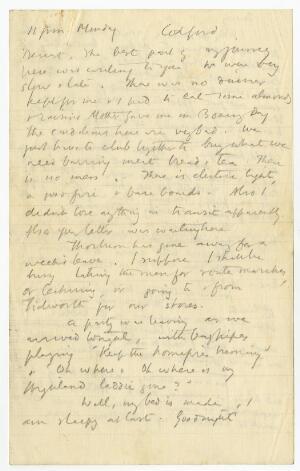 11 p.m. Monday Codford
Dearest, The best part of my journey
here was writing to you. We were very
slow & late. There was no dinner
kept for me & I had to eat some almonds
& raisins Mother gave me on Boxing Day
The conditions here are very bad. We
just have to club together & buy what we
need barring meat bread & tea. There
is no mess. There is electric light,
a poor fire & bare boards. Also I
didn't lose anything in transit apparently
Also your letter was waiting here.
Thorburn has gone away for a
week's leave. I suppose I shall be
busy taking the men for route marches
or lecturing, or going to & from
Tidworth for our stores.
A party was leaving as we
arrived tonight, with bagpipes
playing "Keep the homefires burning"
& "Oh where & Oh where is my
Highland laddie gone?"
Well, my bed is made, I
am sleepy at last. Goodnight